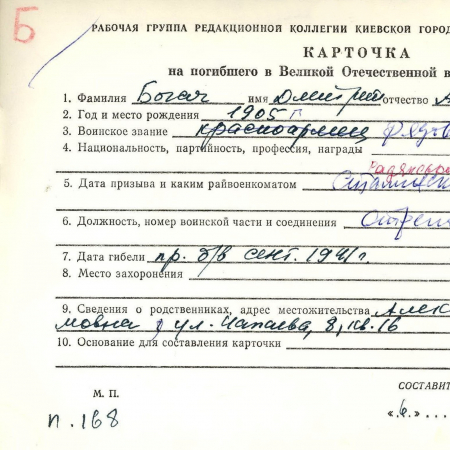 Б
РАБОЧАЯ ГРУППА РЕДАКЦИОННОЙ КОЛЛЕГИИ КИЕВСКОЙ ГОРОД
КАРТОЧКА
на погибшего в Великой Отечественной в
1. Фамилия Богач имя Дмитрий отчество А
2. Год и место рождения 1905 г
3. Воинское звание красноармеец рядов
4. Национальность, партийность, профессия, награды
5. Дата призыва и каким райвоенкоматом
6. Должность, номер воинской части и соединения
7. Дата гибели пр. б/в сент. 1941 г.
8. Место захоронения
9. Сведения о родственниках, адрес местожительства Алек
мовна ул. Чапаева, 8, кв. 16
10. Основание для составления карточки
М. П. СОСТАВИТ
п. 168